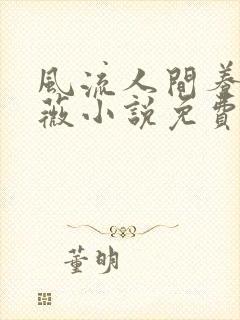 風流人間養
薇小說免費
董明